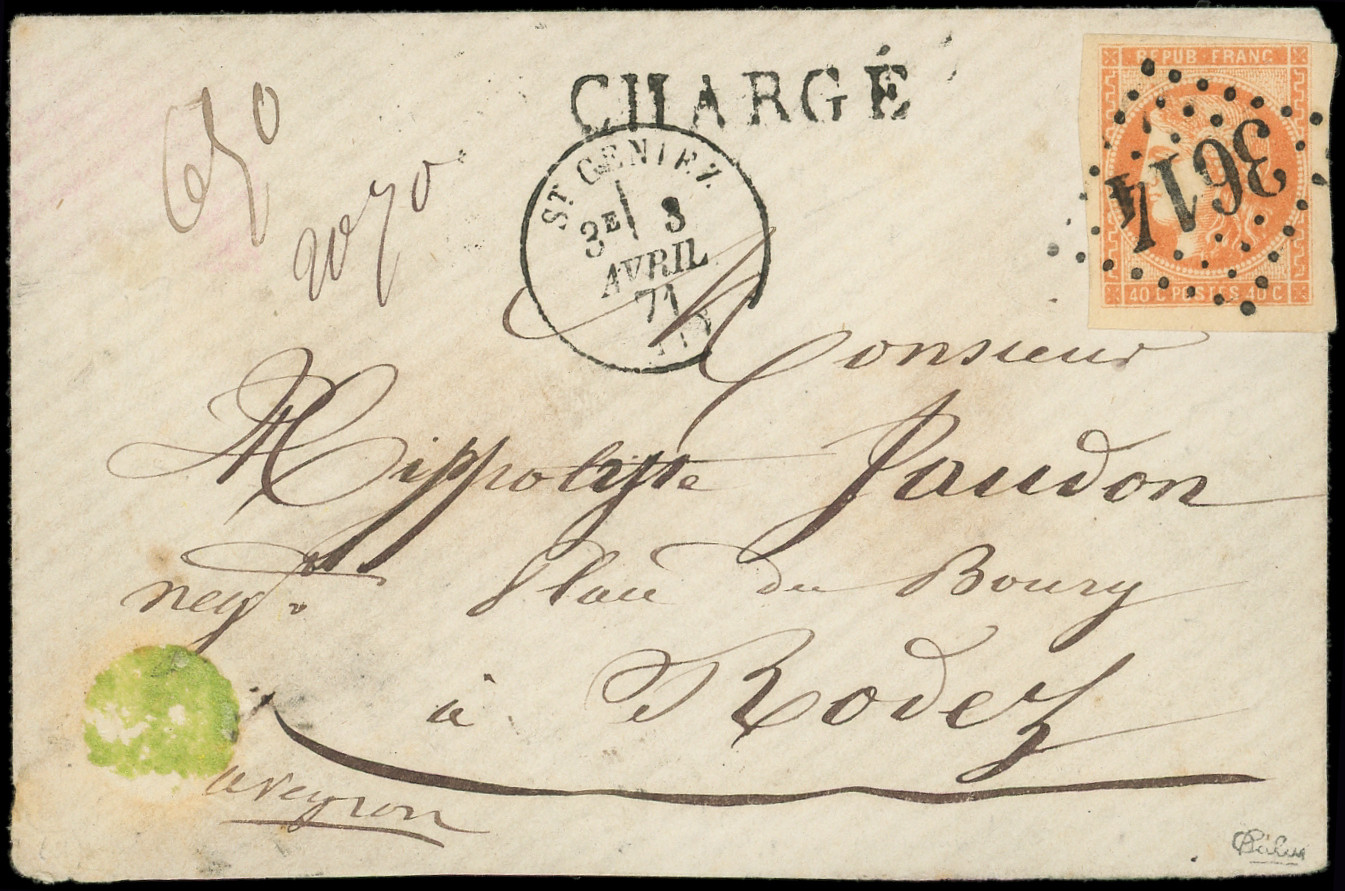 CHARGÉ
REPUB. FRANC.
3614
40 C POSTES 40 C
ST GENIEZ.
3E 3
AVRIL
71
Monsieur
Hippolyte Jaudon
negt. Place du Bourg
à Rodez
aveyron